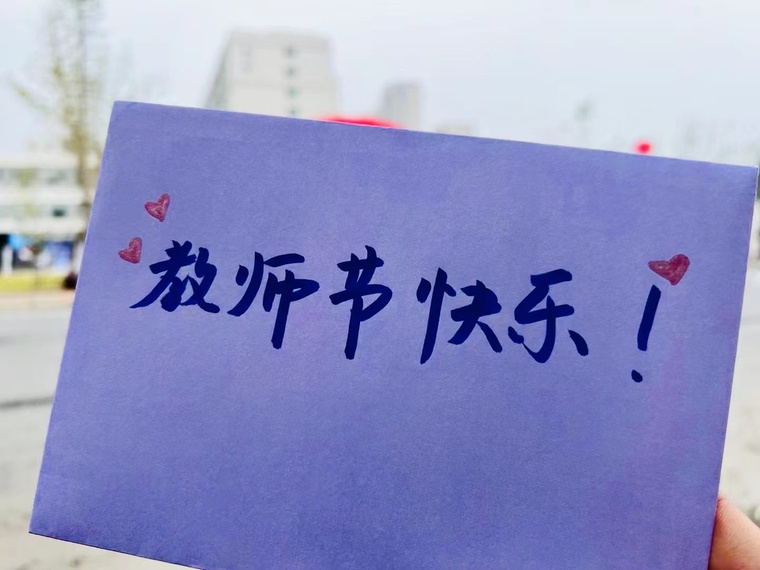 教师节快乐！